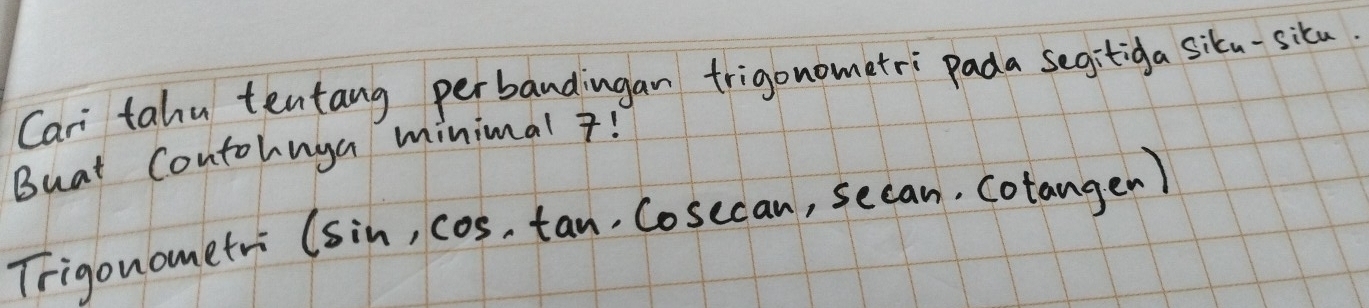 Cari tahu tentang perbandingan trigonometri pada segitiga siku-siku.
Buat Contohnya minimal 7!
Trigonometri (sin, cos, tan, Cosecan, secan, Cotangen)